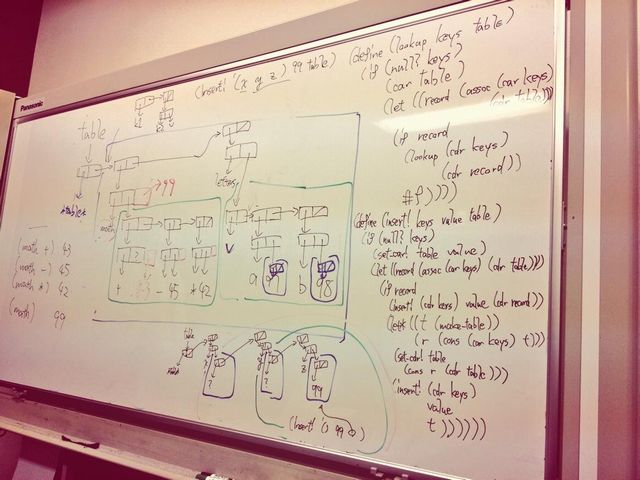 Panasonic
(insert! '(x y z) 99 table)
table
*table*
math
99
letters
+
- 45
* 42
v
a 97
b 98
(math +) 43
(math -) 45
(math *) 42
(math) 99
table
?
?
z
99
(insert! '() 99 )
(define (lookup keys table)
(if (null? keys)
(car table)
(let ((record (assoc (car keys)
(cdr table)))
(if record
(lookup (cdr keys)
(cdr record))
#f))))
(define (insert! keys value table)
(if (null? keys)
(set-car! table value)
(let ((record (assoc (car keys) (cdr table))))
(if record
(insert! (cdr keys) value (cdr record))
(let* ((t (make-table))
(r (cons (car keys) t)))
(set-cdr! table
(cons r (cdr table)))
(insert! (cdr keys)
value
t))))))